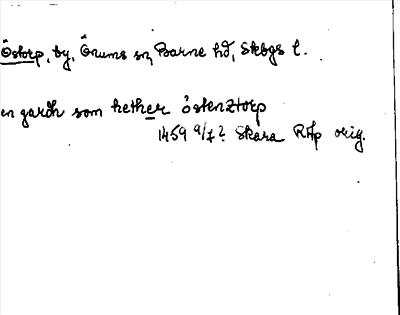 Östorp, by, Önums sn, Barne hd, Skbgs l.
en gardh som hether östenztorp
1459 9/7? Skara RAp orig.